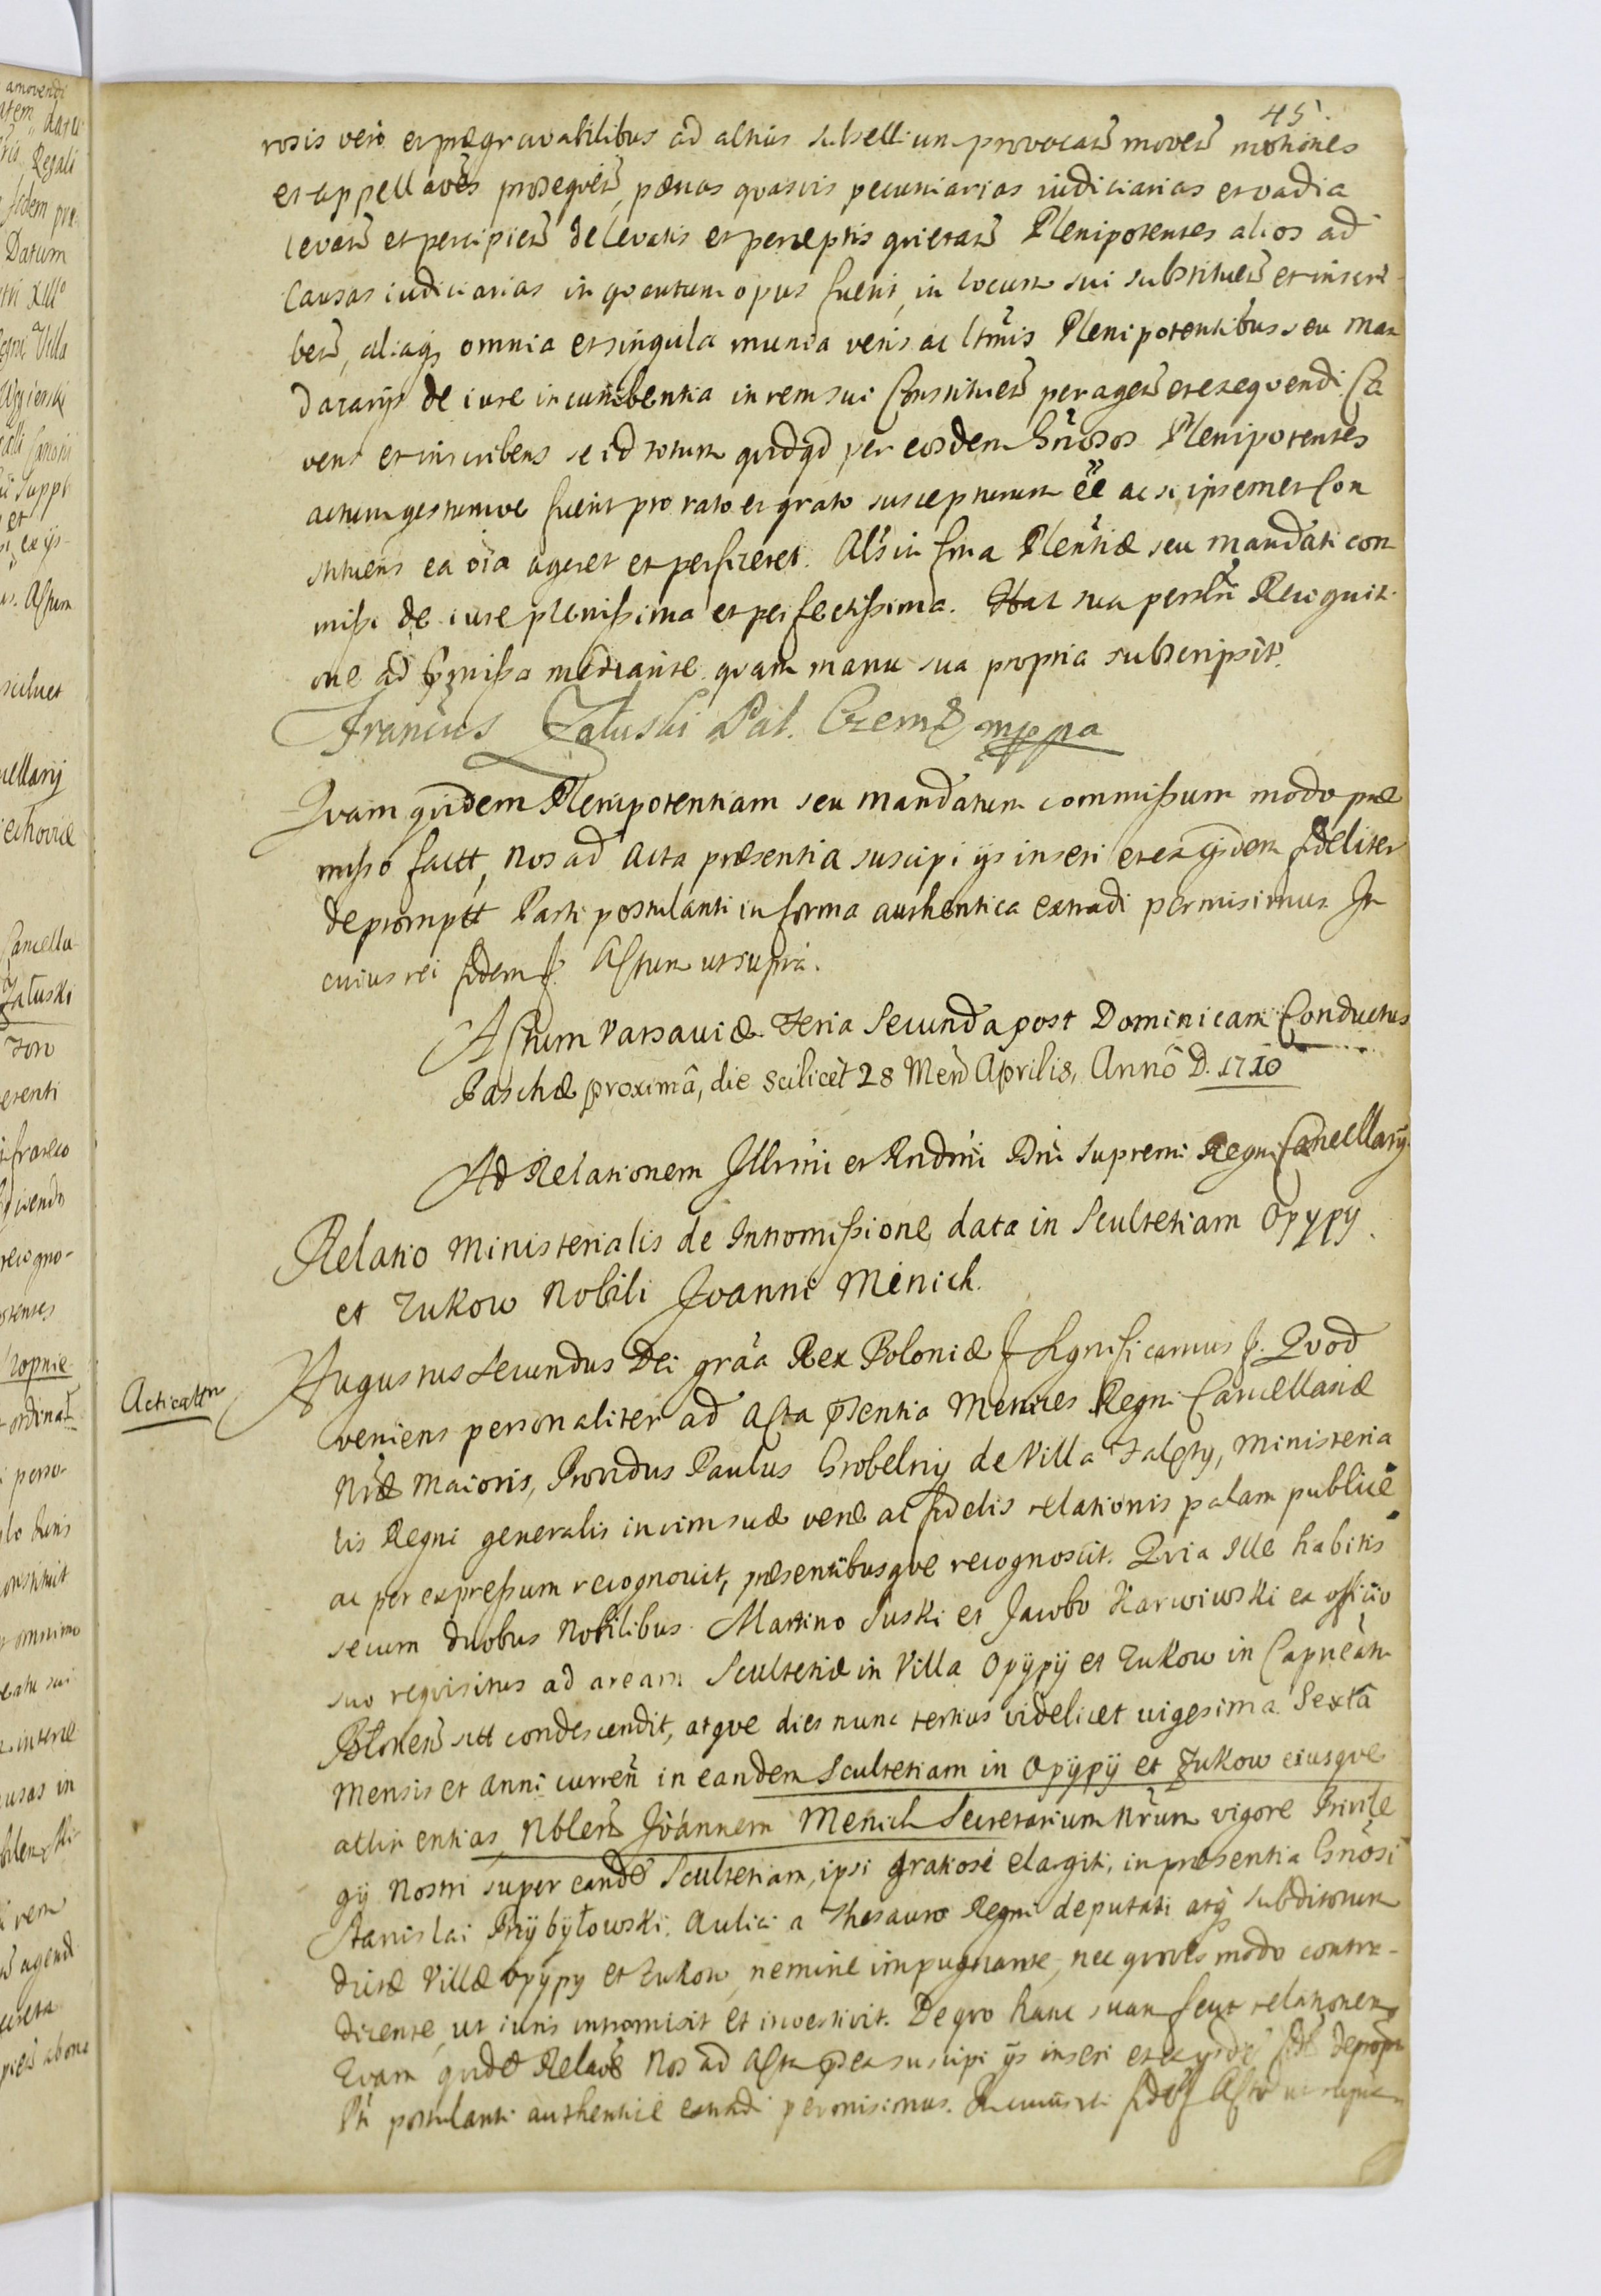 45.
rosis vero et prægravabilibus ad altius subsellium provocan̄ moven̄ motiones
et appellāoēs proseqūen̄, pœnas quasvis pecuniarias iudiciarias et vadia
levan̄ et percipien̄ de levatis et perceptis quietan̄ Plenipotentes alios ad
causas iudiciarias in quantum opus fuerit, in locum sui substituen̄ et inscri
ben̄, aliaqȝ omnia et singula munia veris ac ltm̄is Plenipotentibus seu Man
datarijs de iure incumbentia in rem sui Constituen̄ peragen̄ et exequendi. Ca
vens et inscribens se id totum quidqd per eosdem Gn̄osos Plenipotentes
actum gestumve fuerit pro rato et grato suscepturum ēē ac si ipsemet Con
stituens ea oīa ageret et perficeret. Al's in forma Plen̄tiæ seu mandati com
missi de iure plenissima et perfectissima. Hac sua personli Recognit
one ad præmissa mediante quam manu sua propria subscripsit.
Francius Załuski Pal. Czern̄ mppa
Quam quidem Plenipotentiam seu mandatum commissum modo præ
misso factt, nos ad Acta præsentia suscipi ijs inseri et ex ijsdem fideliter
deprompt̄t Parti postulanti in forma authentica extradi permisimus. In
cuius rei fidem f. Actum ut supra.
Actum Varsaviæ Feria Secunda post Dominicam Conductus
Paschæ proximâ, die scilicèt 28 Men̄ Aprilis, Annô D. 1710
Ad Relationem Illr̄mi et Rndm̄i Dn̄i Supremi Regni Cancellarij
Relatio Ministerialis de Intromissione data in Scultetiam Opypy
et Zukow Nobili Joanni Menich.
Acticattn
Augustus Secundus Dei grā̄a Rex Poloniæ f Significamus f. Quod
veniens personaliter ad Acta p̄sentia Metrices Regni Cancellariæ
Nr̄æ Maioris, Providus Paulus Grobelny de Villa Falęty, Ministeria
lis Regni generalis in vim suæ veræ ac fidelis relationis palam publice
ac per expressum recognovit, præsentibusque recognoscit. Quia Ille habitis
secum duobus Nobilibus Martino Suski et Jacobo Karwowski ex officio
suo requisitus ad aream Scultetiæ in Villa Opÿpÿ et Zukow in Capneātu
Blonen̄ sitt condescendit, atque dies nunc tertius videlicet vigesima Sexta
Mensis et anni curren̄ in eandem Scultetiam in Opÿpÿ et Zukow eiusque
attinentias, Nblem̄ Joannem Menich Secretarium Nr̄um vigore Privile
gij Nostri super eandē Scultetiam, ipsi gratiosè elargiti, in præsentia Gn̄osi
Stanislai Przÿbÿłowski Aulici a Thesauro Regni deputati atqȝ subditorum
dictæ Villæ Opypy et Zukow, nemine impugnante, nec quovis modo contra-
dicente, ut iuris intromisit et investivit. De quo hanc suam fecit relationem
Quam quidē Relaōē Nos ad Acta p̄ea suscipi ijs inseri et ex ijsdē fidē deprōpt
Pti postulanti authenticè extradi permisimus. In cuius rei fidē f Actū ut supra